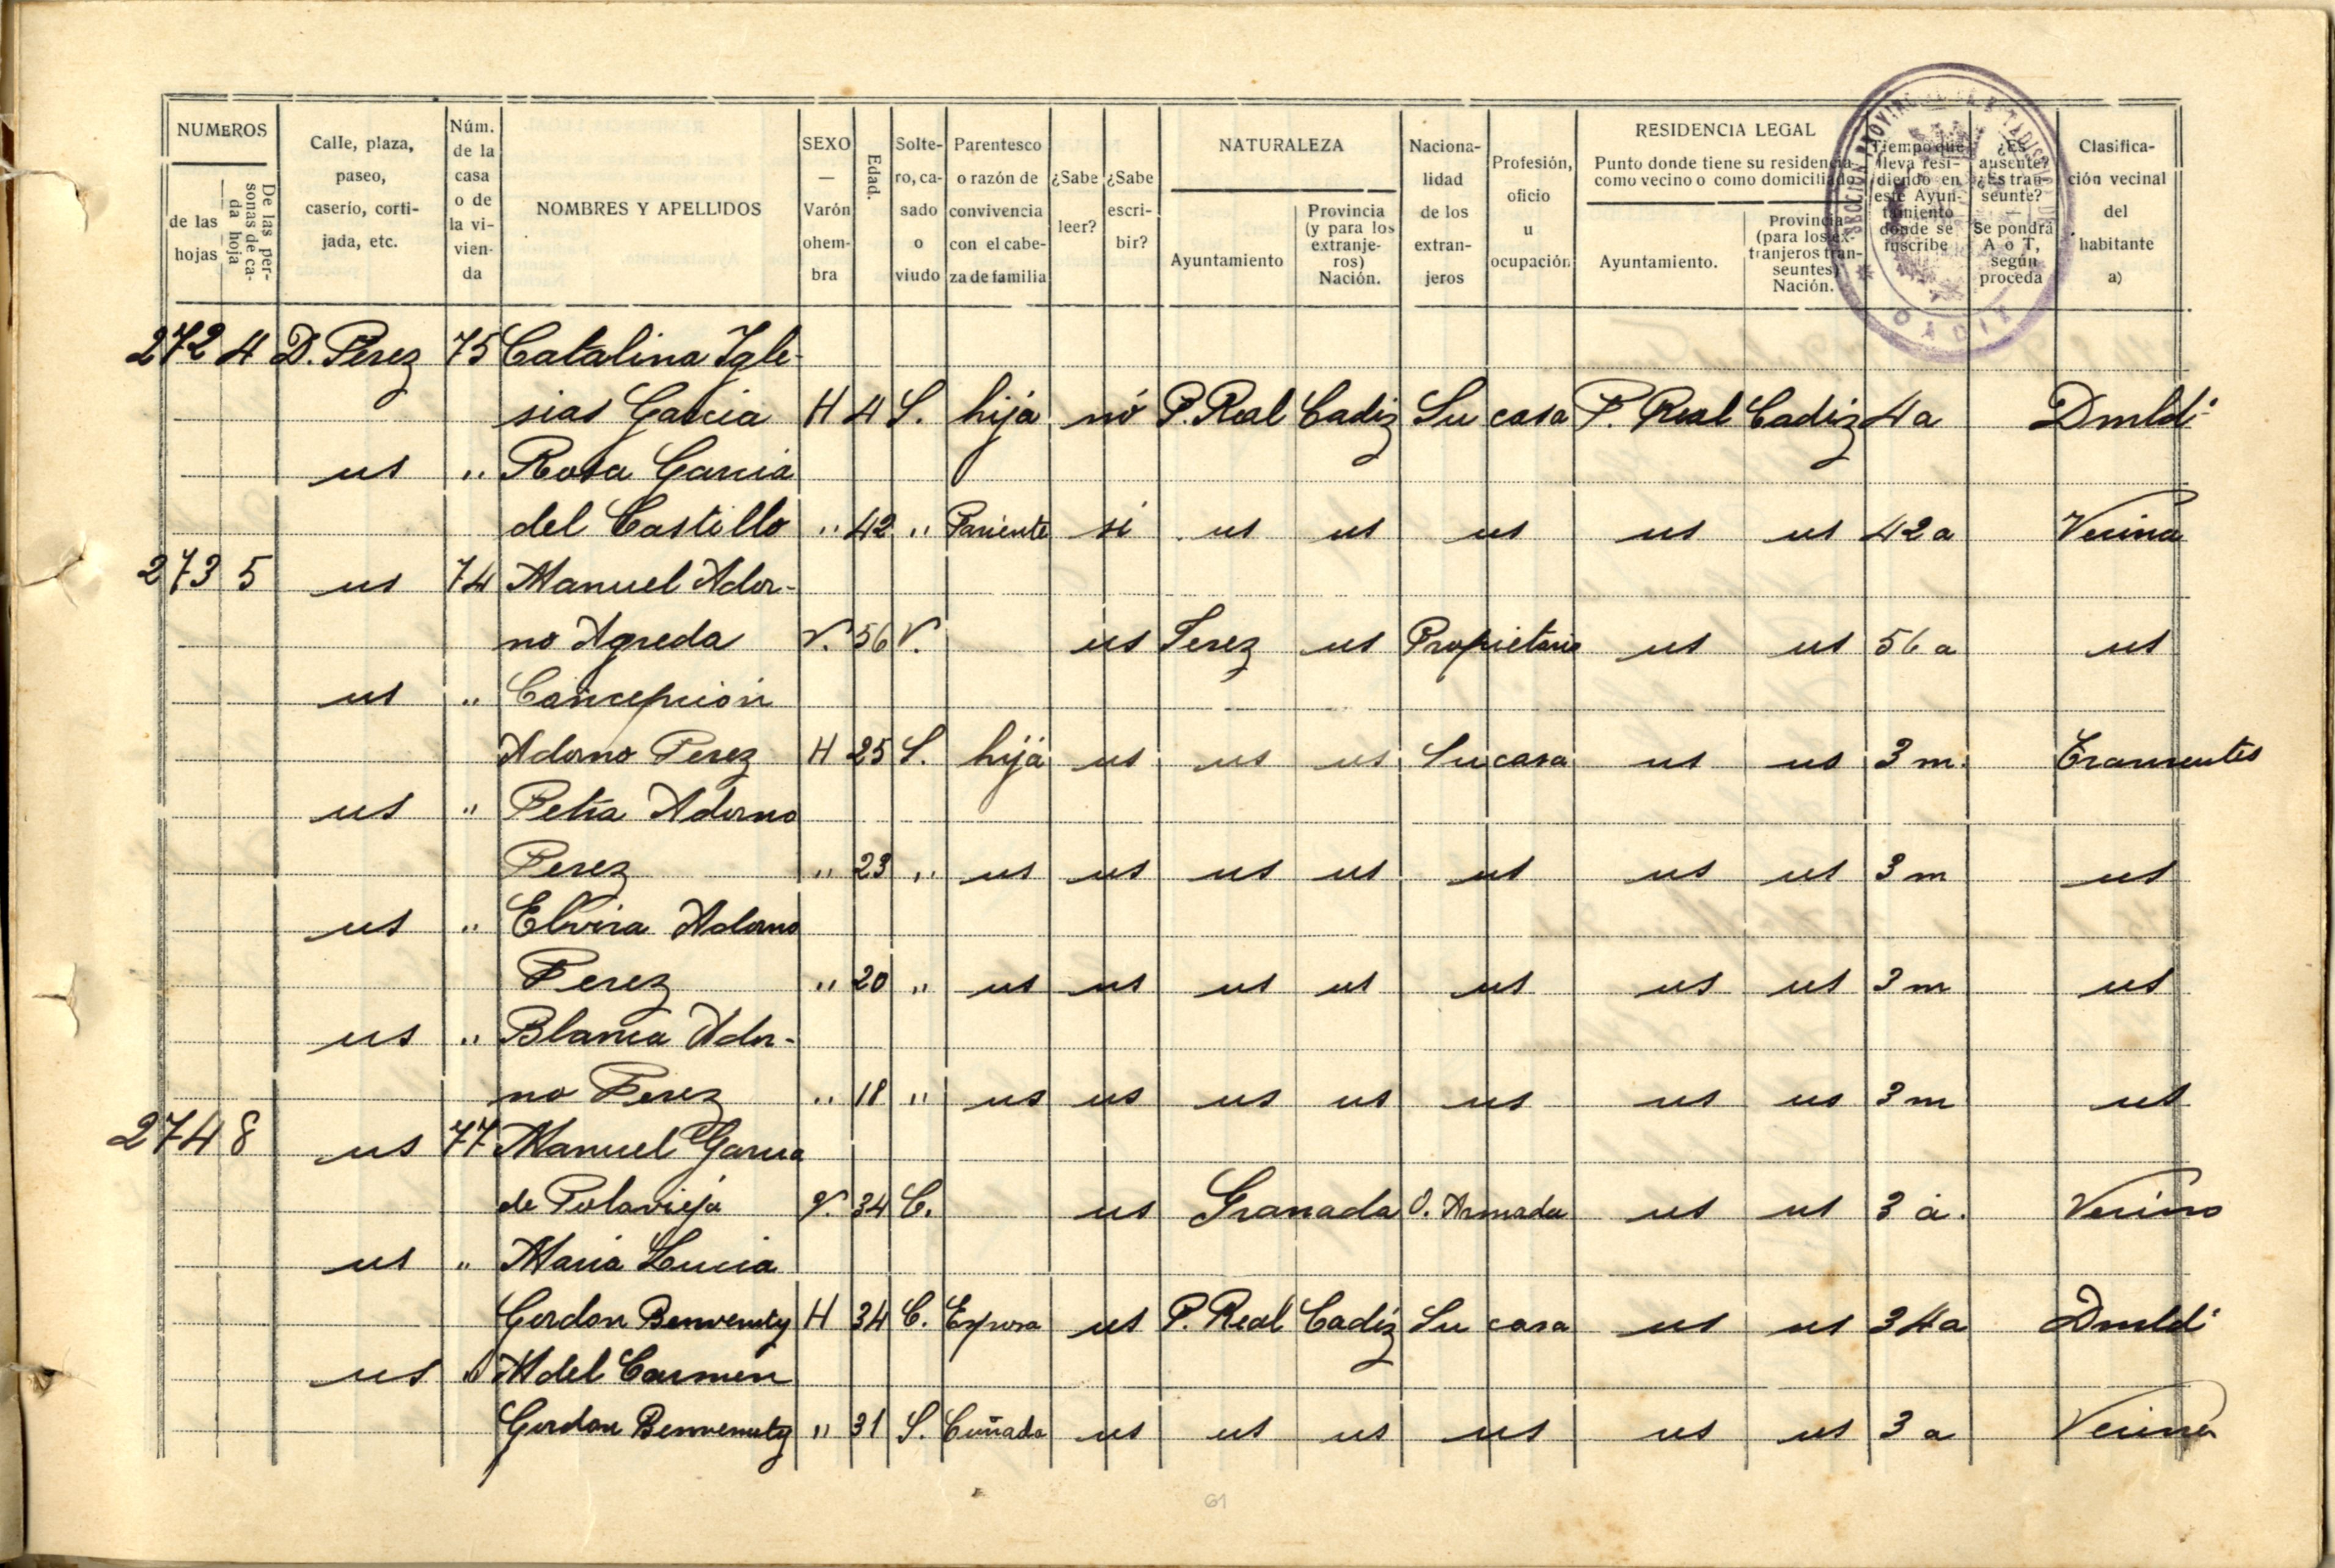 NUMEROS
de las hojas
De las personas de cada hoja
Calle, plaza, paseo, caserío, cortijada, etc.
Núm. de la casa o de la vivienda
NOMBRES Y APELLIDOS
SEXO — Varón ohembra
Edad.
Soltero, casado o viudo
Parentesco o razón de convivencia con el cabeza de familia
¿Sabe leer?
¿Sabe escribir?
NATURALEZA
Ayuntamiento
Provincia (y para los extranjeros) Nación.
Nacionalidad de los extranjeros
Profesión, oficio u ocupación
RESIDENCIA LEGAL
Punto donde tiene su residencia como vecino o como domiciliado
Ayuntamiento.
Provincia (para los extranjeros transeuntes) Nación.
Tiempo que lleva residiendo en este Ayuntamiento donde se inscribe
¿Es ausente? ¿Es transeunte? Se pondrá A o T, según proceda
Clasificación vecinal del habitante a)
CADIZ
272 4 D. Perez 75 Catalina Igle-
sias Garcia H 4 S. hija nó P. Real Cadiz Su casa P. Real Cadiz 4a Dmldi
us " Rosa Garcia
del Castillo " 42 " Pariente si us us us us us 42 a Vecina
273 5 us 74 Manuel Ador-
no Agreda V. 56 V. us Jerez us Propietario us us 56 a us
us " Concepción
Adorno Perez H 25 S. hija us us us Su casa us us 3 m. Transeuntes
us " Petra Adorno
Perez " 23 " us us us us us us us 3 m us
us " Elvira Adorno
Perez " 20 " us us us us us us us 3 m us
us " Blanca Ador-
no Perez " 18 " us us us us us us us 3 m us
274 8 us 77 Manuel Garcia
de Polavieja V. 34 C. us Granada O. Armada us us 3 a. Vecino
us " Maria Lucia
Gordon Benvenuty H 34 C. Esposa us P. Real Cadiz Su casa us us 34a Dmldi
us " M del Carmen
Gordon Benvenuty " 31 S. Cuñada us us us us us us 3 a Vecina
61